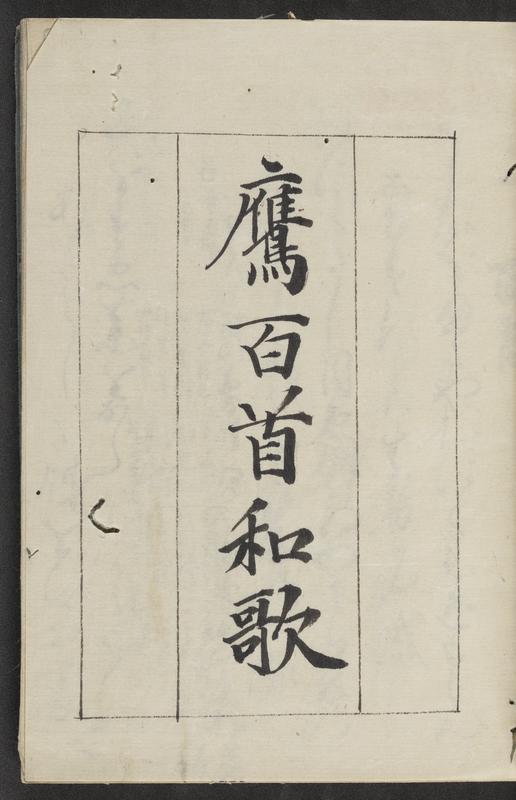 鷹百首和歌